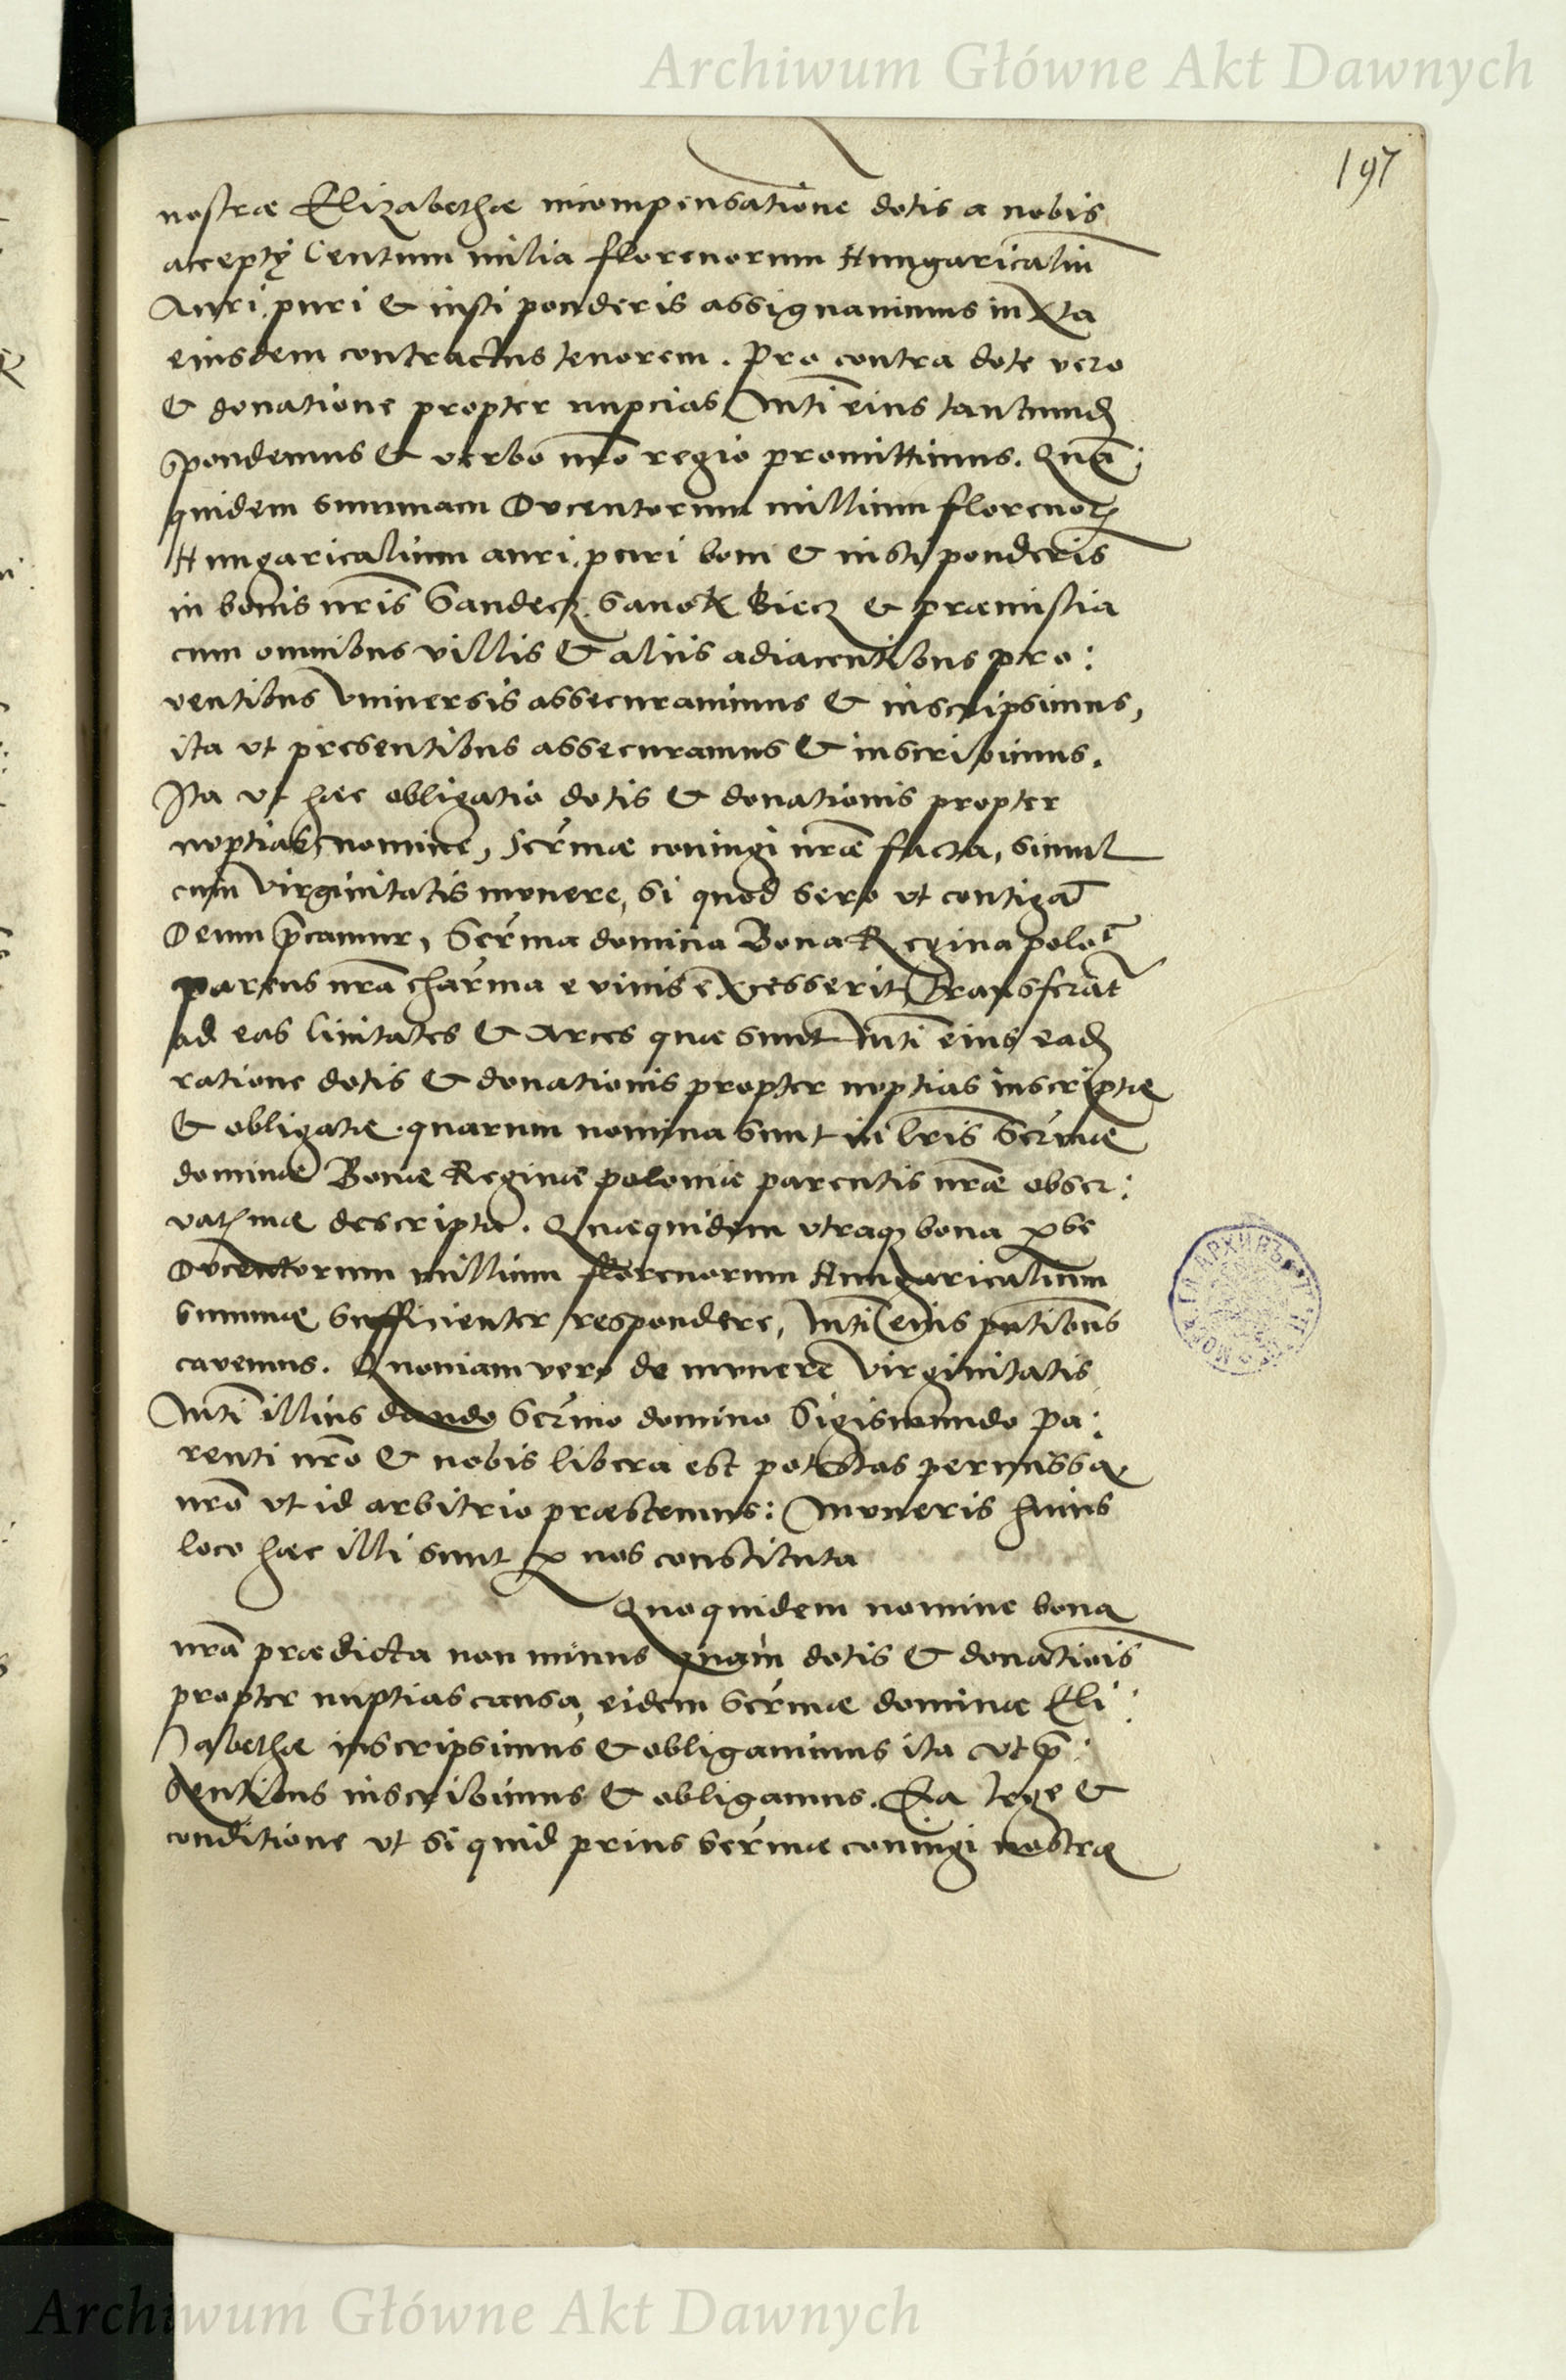 Archiwum Główne Akt Dawnych
197
nostræ Elizabethæ incompensatione dotis a nobis
acceptę Centum milia florenorum Hungaricaliū
Auri puri & iusti ponderis assignauimus iuxta
eiusdem contractus tenorem. Pro contra dote vero
& donatione propter nupcias Mti eius tantundē
spondemus & verbo nrō regio promittimus. Quā:
quidem summam Ducentorum millium florenorū
Hungaricalium auri puri boni & iusti ponderis
in bonis nrīs Sandecz Sanok Biecz & præmislia
cum omnibus villis & aliis adiacentibus pro:
ventibus vniuersis assecurauimus & inscripsimus,
ita vt presentibus assecuramus & inscribimus.
Ita vt hæc obligatio dotis & donationis propter
nuptias nomine, Sermæ coniugi nrāe facta, simul
cum virginitatis munere, si quod sero vt contigāt
Deum p̄camur, Serma domina Bona Regina polo:
parens nrā charma e viuis excesserit Transferāt
ad eas Ciuitates & Arces quæ sunt Mti eius eadē
ratione dotis & donationis propter nuptias inscriptæ
& obligatæ quarum nomina sunt in lrīs Sermæ
dominæ Bonæ Reginæ poloniæ parentis nrāe obser:
vatmæ descriptæ. Quæquidem vtraq bona p se
Ducentorum millium florenorum Hungaricalium
summæ sufficienter respondere, Mti eius pntibus
cavemus. Quoniam vero de munere virginitatis
Mti illius dando Sermo domino Sigismundo pa:
renti nrō & nobis libera est potestas permissa
nrō vt id arbitrio præstemus: Muneris huius
loco hæc illi sunt p nos constituta
Quo quidem nomine bona
nrā prædicta non minus quam dotis & donatiois
propter nuptias causa, eidem Sermæ dominæ Eli:
zabethæ inscripsimus & obligauimus ita vt p̄:
sentibus inscribimus & obligamus. Ea lege &
conditione vt si quid prius Sermæ coniugi nostræ
Archiwum Główne Akt Dawnych